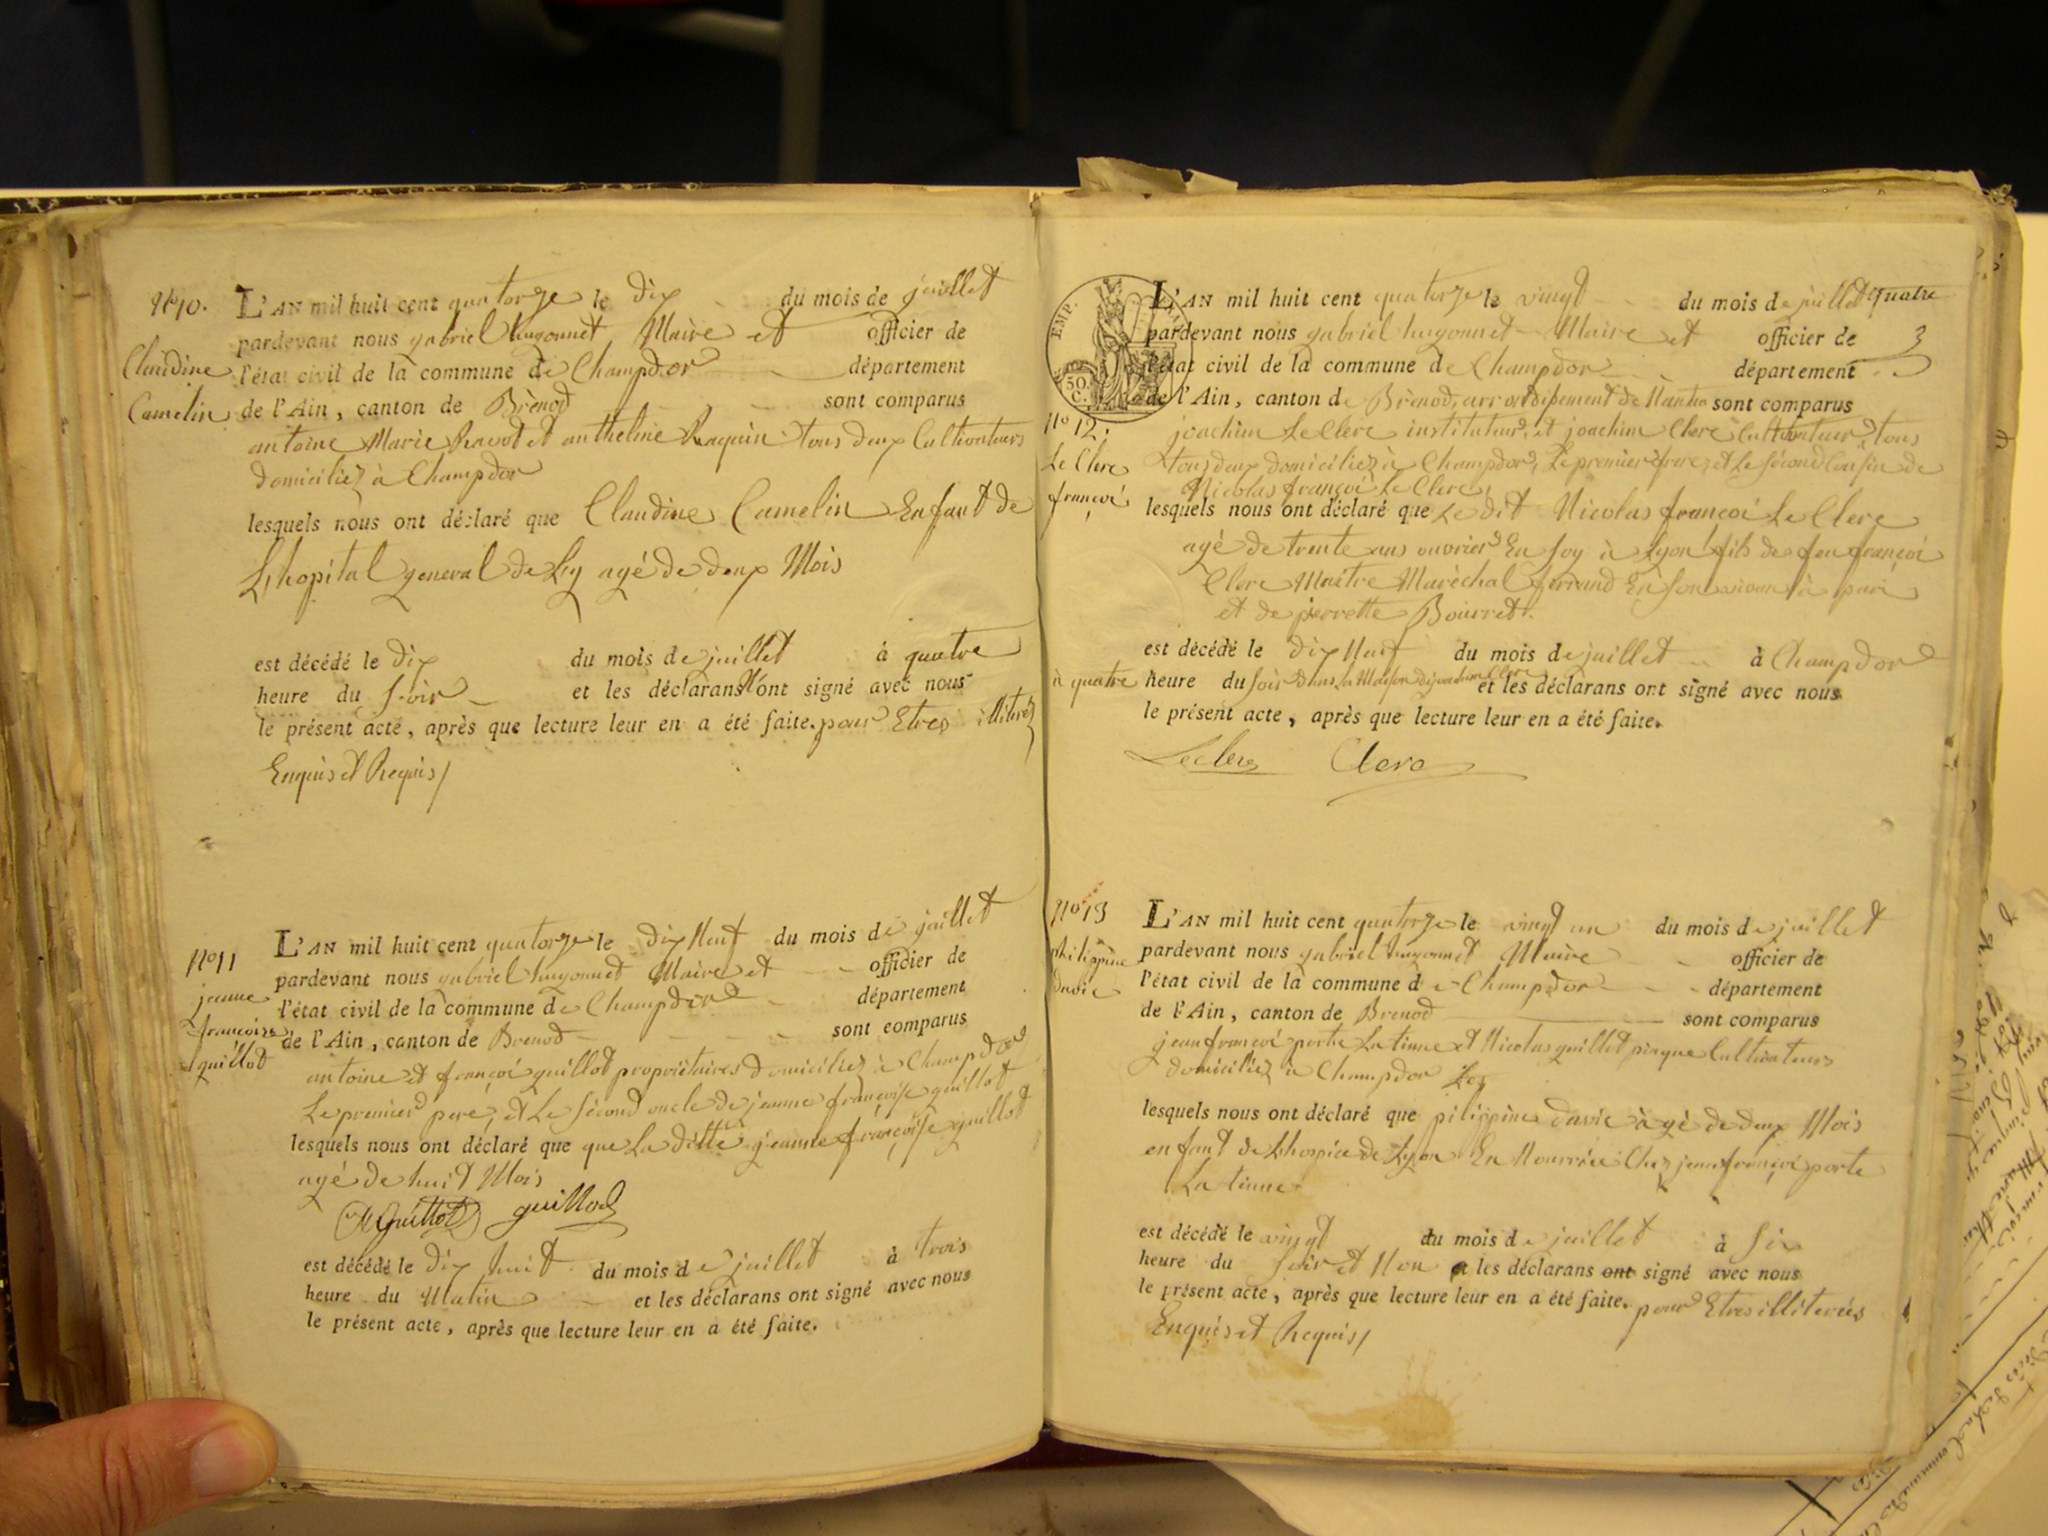 No 10.
Claudine
Camelin
L'AN mil huit cent quatorze le dix du mois de juillet
pardevant nous gabriel hugonnet Maire et officier de
l'état civil de la commune de Champdor département
de l'Ain, canton de Brènod sont comparus
antoine Marie Ravot et antheline Raquin tous deux Cultivateurs
domiciliez à Champdor
lesquels nous ont déclaré que Claudine Camelin Enfant de
L'hopital general de Ly agé de deux Mois
est décédé le dix du mois de juillet à quatre
heure du Soir et les déclarans n'ont signé avec nous
le présent acte, après que lecture leur en a été faite. pour Etres illiterez
Enquis et Requis/
No 11
jeanne
françoise
guillot
L'AN mil huit cent quatorze le dix Neuf du mois de juillet
pardevant nous gabriel hugonnet Maire et officier de
l'état civil de la commune de Champdor département
de l'Ain, canton de Brenod sont comparus
antoine et françoi guillot propriétaires domiciliez à Champdor
Le premier pere, et Le Second oncle de jeanne françoise guillot
lesquels nous ont déclaré que que La ditte jeanne françoise guillot
agé de huit Mois
guillot guillot
est décédé le dix huit du mois de juillet à trois
heure du Matin et les déclarans ont signé avec nous
le présent acte, après que lecture leur en a été faite.
EMP.
50
C.
quatre
3
No 12.
Le Clerc
françoi
L'AN mil huit cent quatorze le vingt du mois de juillet
pardevant nous gabriel hugonnet Maire et officier de
l'état civil de la commune de Champdor département
de l'Ain, canton de Brènod, arrondissement de Nantua sont comparus
joachim Le Clerc instituteur, et joachim Clerc Cultivateur, tous
tous deux domiciliez à Champdor, Le premier frere, et Le Second Cousin de
Nicolas françoi Le Clerc,
lesquels nous ont déclaré que Le dit Nicolas françoi Le Clerc
agé de trente ans ouvrier En Soy à Lyon fils de feu françoi
Clerc Maitre Maréchal ferrand En Son vivant à pari
et de pierrette Bourret.
est décédé le dix Neuf du mois de juillet à Champdor
à quatre heure du Soir dans La Maison de joachim Clerc et les déclarans ont signé avec nous
le présent acte, après que lecture leur en a été faite.
Leclerc Clerc
No 13
philippine
Davie
L'AN mil huit cent quatorze le vingt un du mois de juillet
pardevant nous gabriel hugonnet Maire officier de
l'état civil de la commune de Champdor département
de l'Ain, canton de Brenod sont comparus
jean françoi porte La tienne et Nicolas guillot pingue Cultivateurs
domiciliez à Champdor Les
lesquels nous ont déclaré que pilippine davie àgé de deux Mois
enfant de Lhospice de Lyon En Nourrice Chez jean françoi porte
La tienne
est décédé le vingt du mois de juillet à Six
heure du Soir et Non les déclarans ont signé avec nous
le présent acte, après que lecture leur en a été faite. pour Etres illiterées
Enquis et Requis/